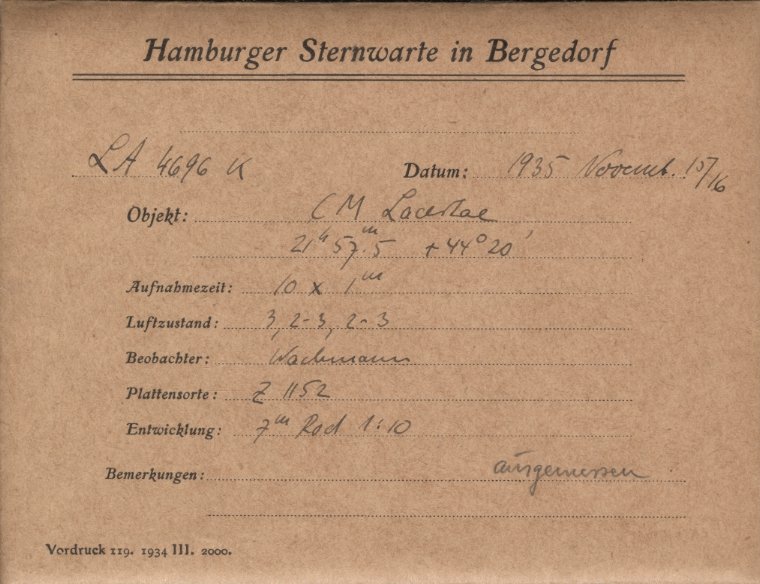 Hamburger Sternwarte in Bergedorf
LA 4696 K Datum: 1935 Novemb. 15/16
Objekt: CM Lacertae
21ʰ 57ᵐ.5 +44° 20'
Aufnahmezeit: 10 x 1ᵐ
Luftzustand: 3, 2-3, 2-3
Beobachter: Wachmann
Plattensorte: Z 1152
Entwicklung: 7ᵐ Rod 1:10
Bemerkungen: ausgemessen
Vordruck 119. 1934 III. 2000.